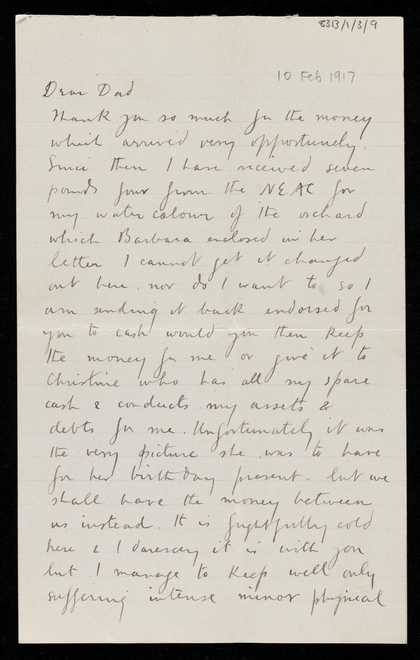 8313/1/3/9
10 Feb 1917
Dear Dad
Thank you so much for the money
which arrived very opportunely.
Since then I have received seven
pounds four from the NEAC for
my water colour of the orchard
which Barbara enclosed in her
letter I cannot get it changed
out here. nor do I want to so I
am sending it back endorsed for
you to cash would you then keep
the money for me or give it to
Christine who has all my spare
cash & conducts my assets &
debts for me. Unfortunately it was
the very picture she was to have
for her birthday present. but we
shall have the money between
us instead. It is frightfully cold
here & I daresay it is with you
but I manage to keep well only
suffering intense minor physical